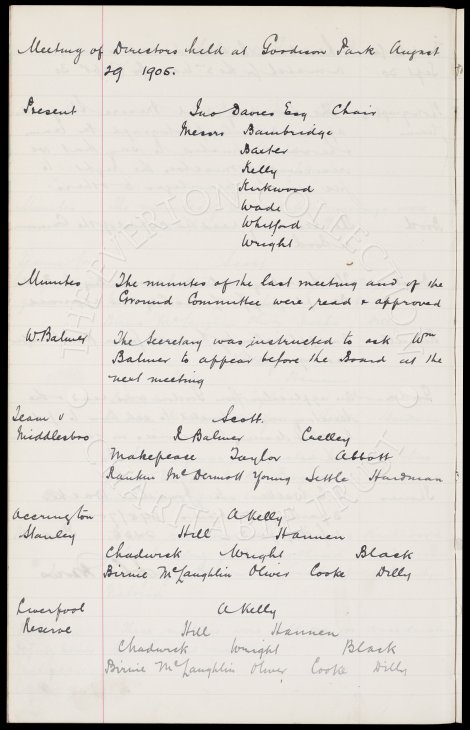 Meeting of Directors held at Goodison Park August
29 1905.
Present Jno Davies Esq Chair
Messrs Bainbridge
Baxter
Kelly
Kirkwood
Wade
Whitford
Wright
Minutes The minutes of the last meeting and of the
Ground Committee were read & approved
W. Balmer The Secretary was instructed to ask Wm
Balmer to appear before the Board at the
next meeting
Team v Scott.
Middlesboro R Balmer Crelley
Makepeace Taylor Abbott
Rankin McDermott Young Settle Hardman
Accrington A Kelly
Stanley Hill Hannen
Chadwick Wright Black
Birnie McLaughlin Oliver Cooke Dilly
Liverpool A Kelly
Reserve Hill Hannen
Chadwick Wright Black
Birnie McLaughlin Oliver Cooke Dilly
THE EVERTON COLLECTION